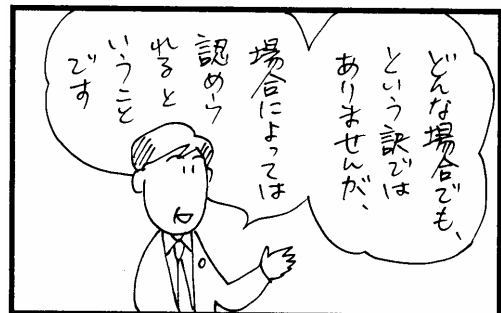 どんな場合でも、
という訳では
ありませんが、
場合によっては
認めら
れると
いうこと
です